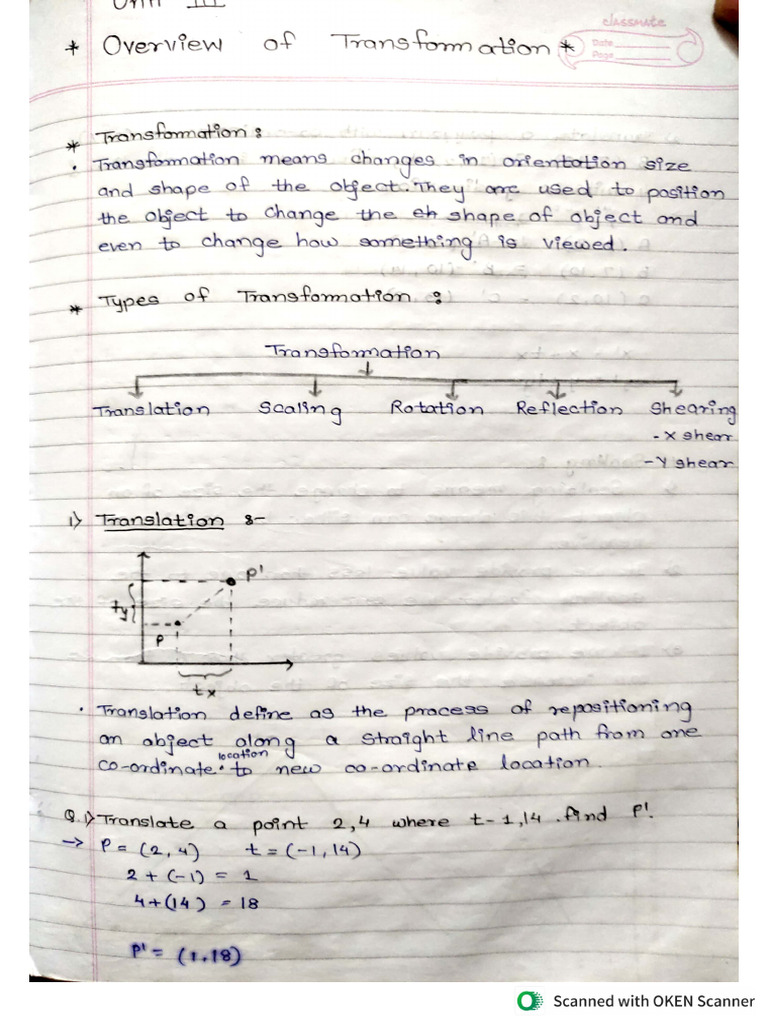 Unit III
classmate
* Overview of Transformation *
Date
Page
* Transformation :
• Transformation means changes in orientation size
and shape of the object. They are used to position
the object to change the eh shape of object and
even to change how something is viewed.
* Types of Transformation :
Transformation
Translation Scaling Rotation Reflection Shearing
- X shear
- Y shear
1) Translation :-
P'
ty
P
tx
• Translation define as the process of repositioning
an object along a straight line path from one
location
co-ordinate • to new co-ordinate location.
Q.1) Translate a point 2,4 where t-1,14 . find P'.
→ P = (2, 4) t = (-1, 14)
2 + (-1) = 1
4+(14) = 18
P' = (1,18)
Scanned with OKEN Scanner